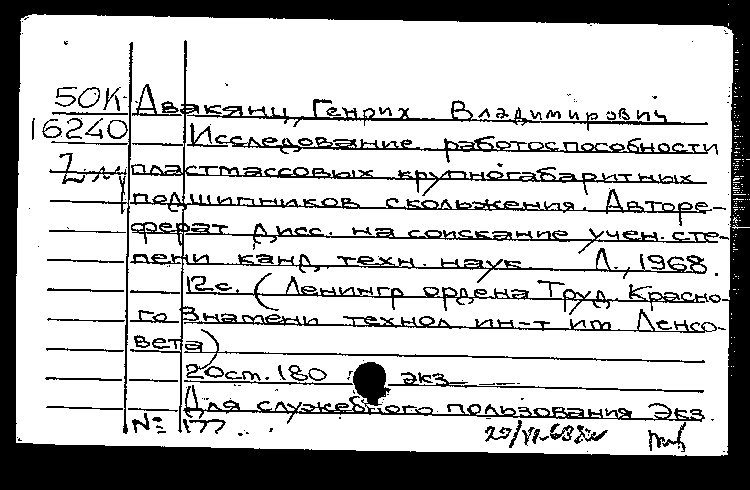 50К Авакянц, Генрих Владимирович
16240 Исследование работоспособности
пластмассовых крупногабаритных
подшипников скольжения. Авторе-
ферат дисс. на соискание учен. сте-
пени канд. техн. наук Л., 1968.
12с. (Ленингр ордена Труд. Красно-
го Знамени технол ин-т им Ленсо-
вета)
20ст. 180 экз
Для служебного пользования Экз.
№ 177